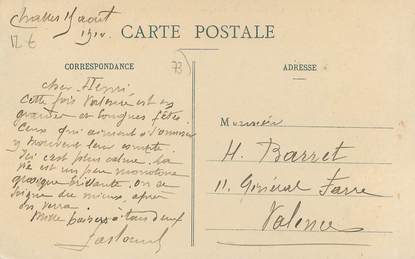 Challes 15 août
1910.
12 t
CARTE POSTALE
CORRESPONDANCE
73
ADRESSE
Cher Henri
Cette fois Valence est en
grandes et longues fêtes
Ceux qui aiment à s'amuser
y trouvent leur compte.
Ici c'est plus calme. La
vie est un peu monotone
quoique brillante. on se
soigne du mieux, après
on verra.
Mille baisers à tous deux
Monsieur
H. Barret
11. Général Farre
Valence